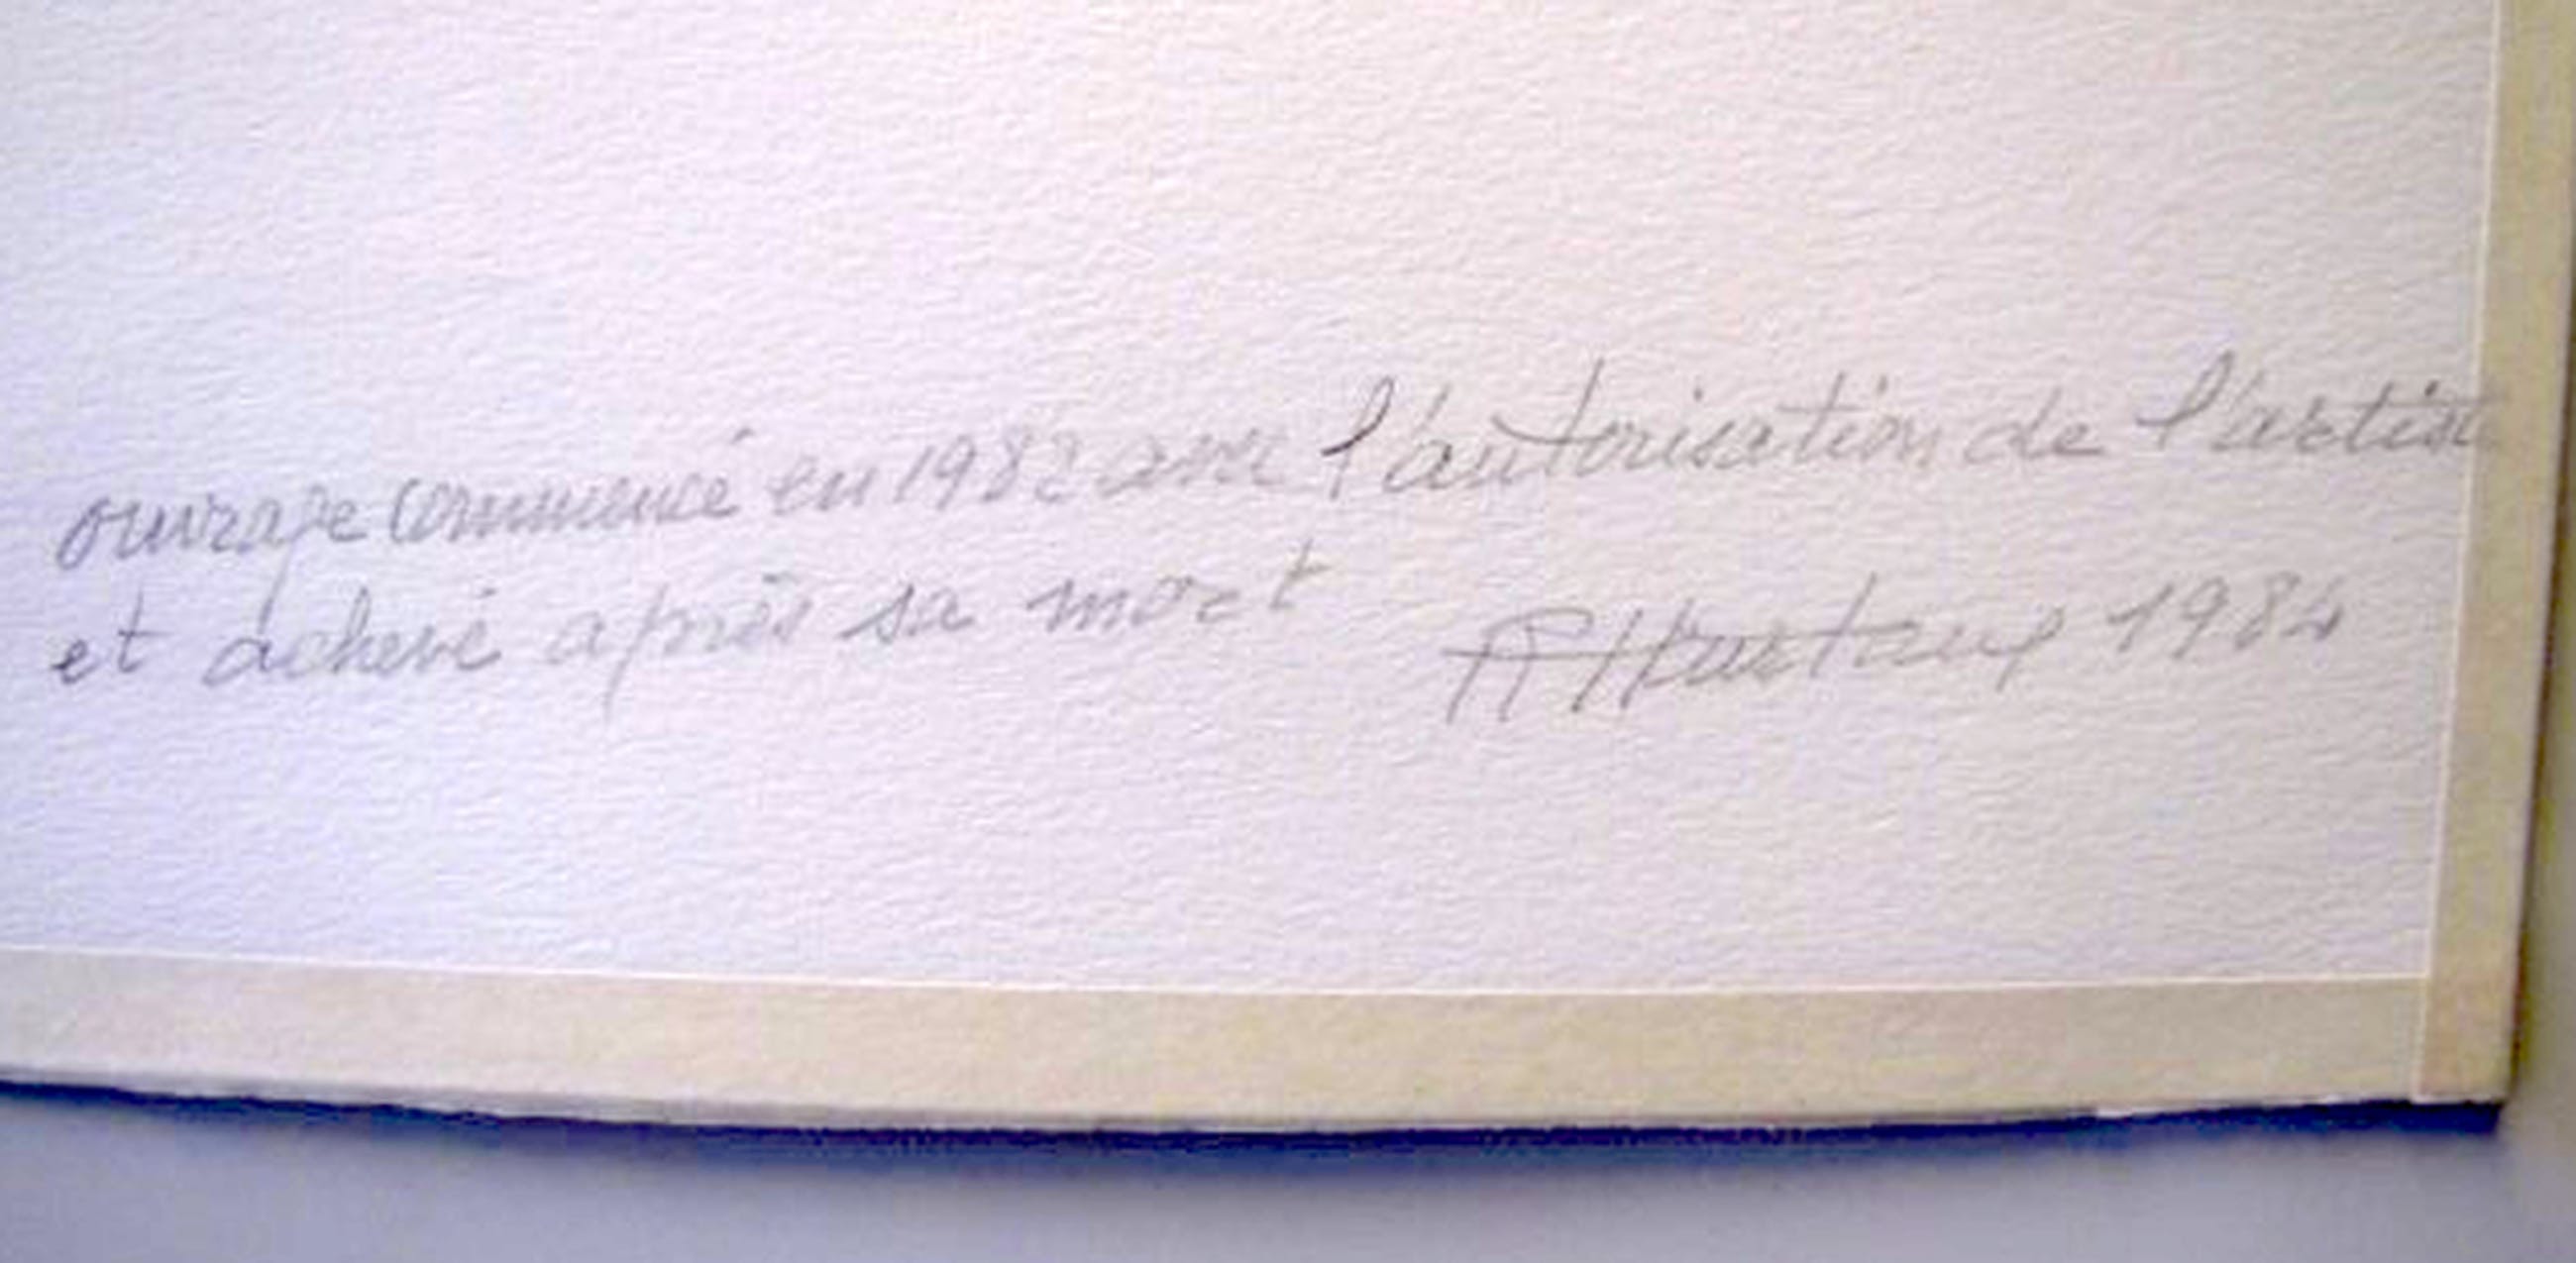 ouvrage commencé en 1982 avec l'autorisation de l'artiste
et achevé après sa mort
1984